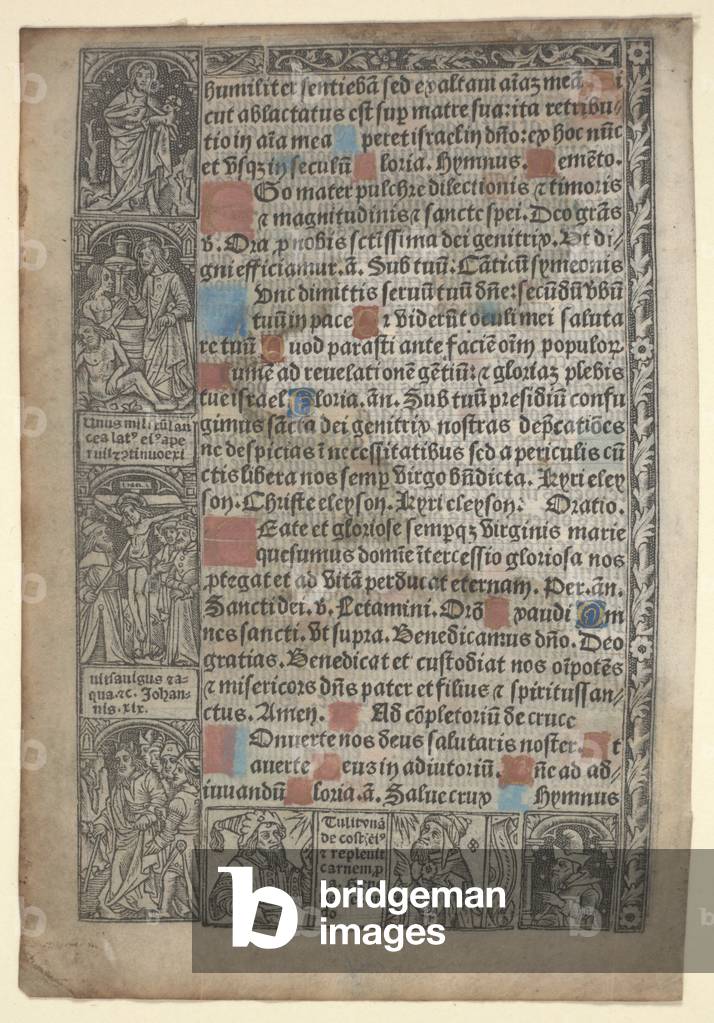 humiliter sentiebā sed exaltaui aīaz meā. i
cut ablactatus est sup matre sua: ita retribu⸗
tio in aīa mea peret israel in dño: ex hoc nūc
et vsqz in seculū loria. Hymnus. emēto.
Go mater pulchre dilectionis ⁊ timoris
⁊ magnitudinis ⁊ sancte spei. Deo grās
v. Ora p nobis sctīssima dei genitrix. Vt di⸗
gni efficiamur. ā. Sub tuū: Cāticū symeonis
Vnc dimittis seruū tuū dñe: secūdū vbū
tuū in pace Q ⁊ viderūt oculi mei saluta
re tuū Q uod parasti ante faciē oīm populoꝝ
umē ad reuelationē gētiū: ⁊ gloriaz plebis
tue israel Gloria. an. Sub tuū presidiū confu
gimus sācta dei genitrix nostras dep̄catiōes
ne despicias ī necessitatibus sed a periculis cū
ctis libera nos semp Virgo bn̄dicta. Kyri eley
son. Christe eleyson. Kyri eleyson: Oratio.
Eate et gloriose sempqz Virginis marie
quesumus domīe ītercessio gloriosa nos
ꝓtegat et ad vitā perducat eternam. Per. an.
Sancti dei. v. Letamini. Orō xaudi Om
nes sancti. Vt supra. Benedicamus dño. Deo
gratias. Benedicat et custodiat nos oīpotēs
⁊ misericors dñs pater et filius ⁊ spiritussan⸗
ctus. Amen. Ad cōpletoriū de cruce
Onuerte nos deus salutaris noster. t
auerte eus in adiutoriū. ñe ad ad⸗
iuuandū loria. ā. Salue crux Hymnus
Vnus militū lan
cea lat⁹ ei⁹ ape
ruit ⁊ ↄtinuo exi
uit sanguis ⁊ a⸗
qua. ⁊c. Johan⸗
nis. xix.
Tulit vnā
de cost; ei⁹
⁊ repleuit
carnem p
bridgeman
images